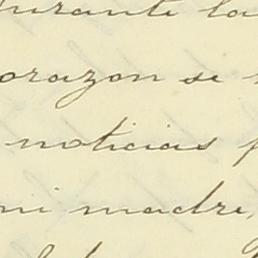 durante la
corazon se
noticias
mi madre,